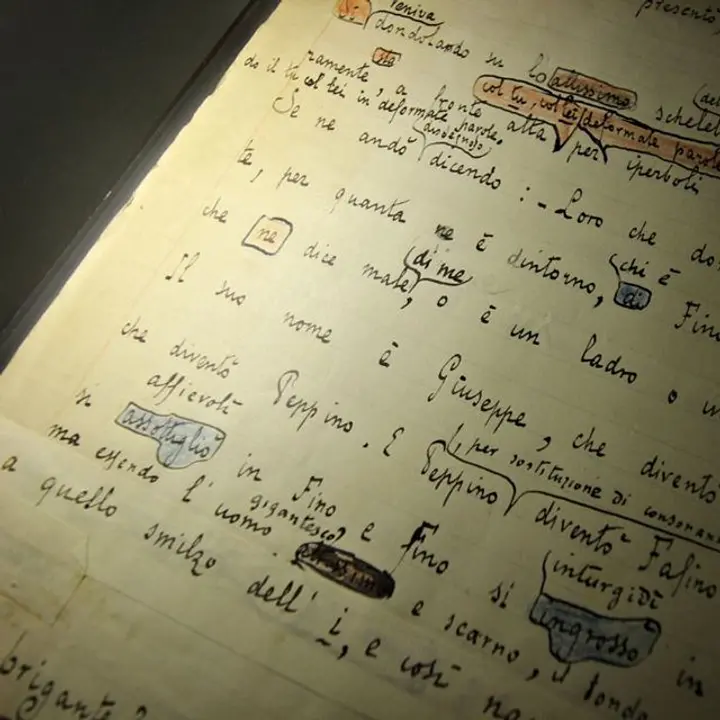 veniva presentò
dondolando su lo altissimo
ste
ramente, a fronte alta per iperboli
col tu, col lei deformate parole
do il tu col lei in deformate parole,
Se ne andò dicendo : - Loro che
te, per quanta ne è dintorno, chi è
che ne dice male, o è un ladro o
di me di Fino
Il suo nome è Giuseppe, che diventò
che diventò Peppino. E Peppino diventò Fafino
, per sostituzione di consonan
affievolì
si assottigliò in Fino e Fino si inturgidì
ingrosso in
ma essendo l'uomo gigantesco, e scarno, il tondo
a quello smilzo dell' i, e così
brigante?